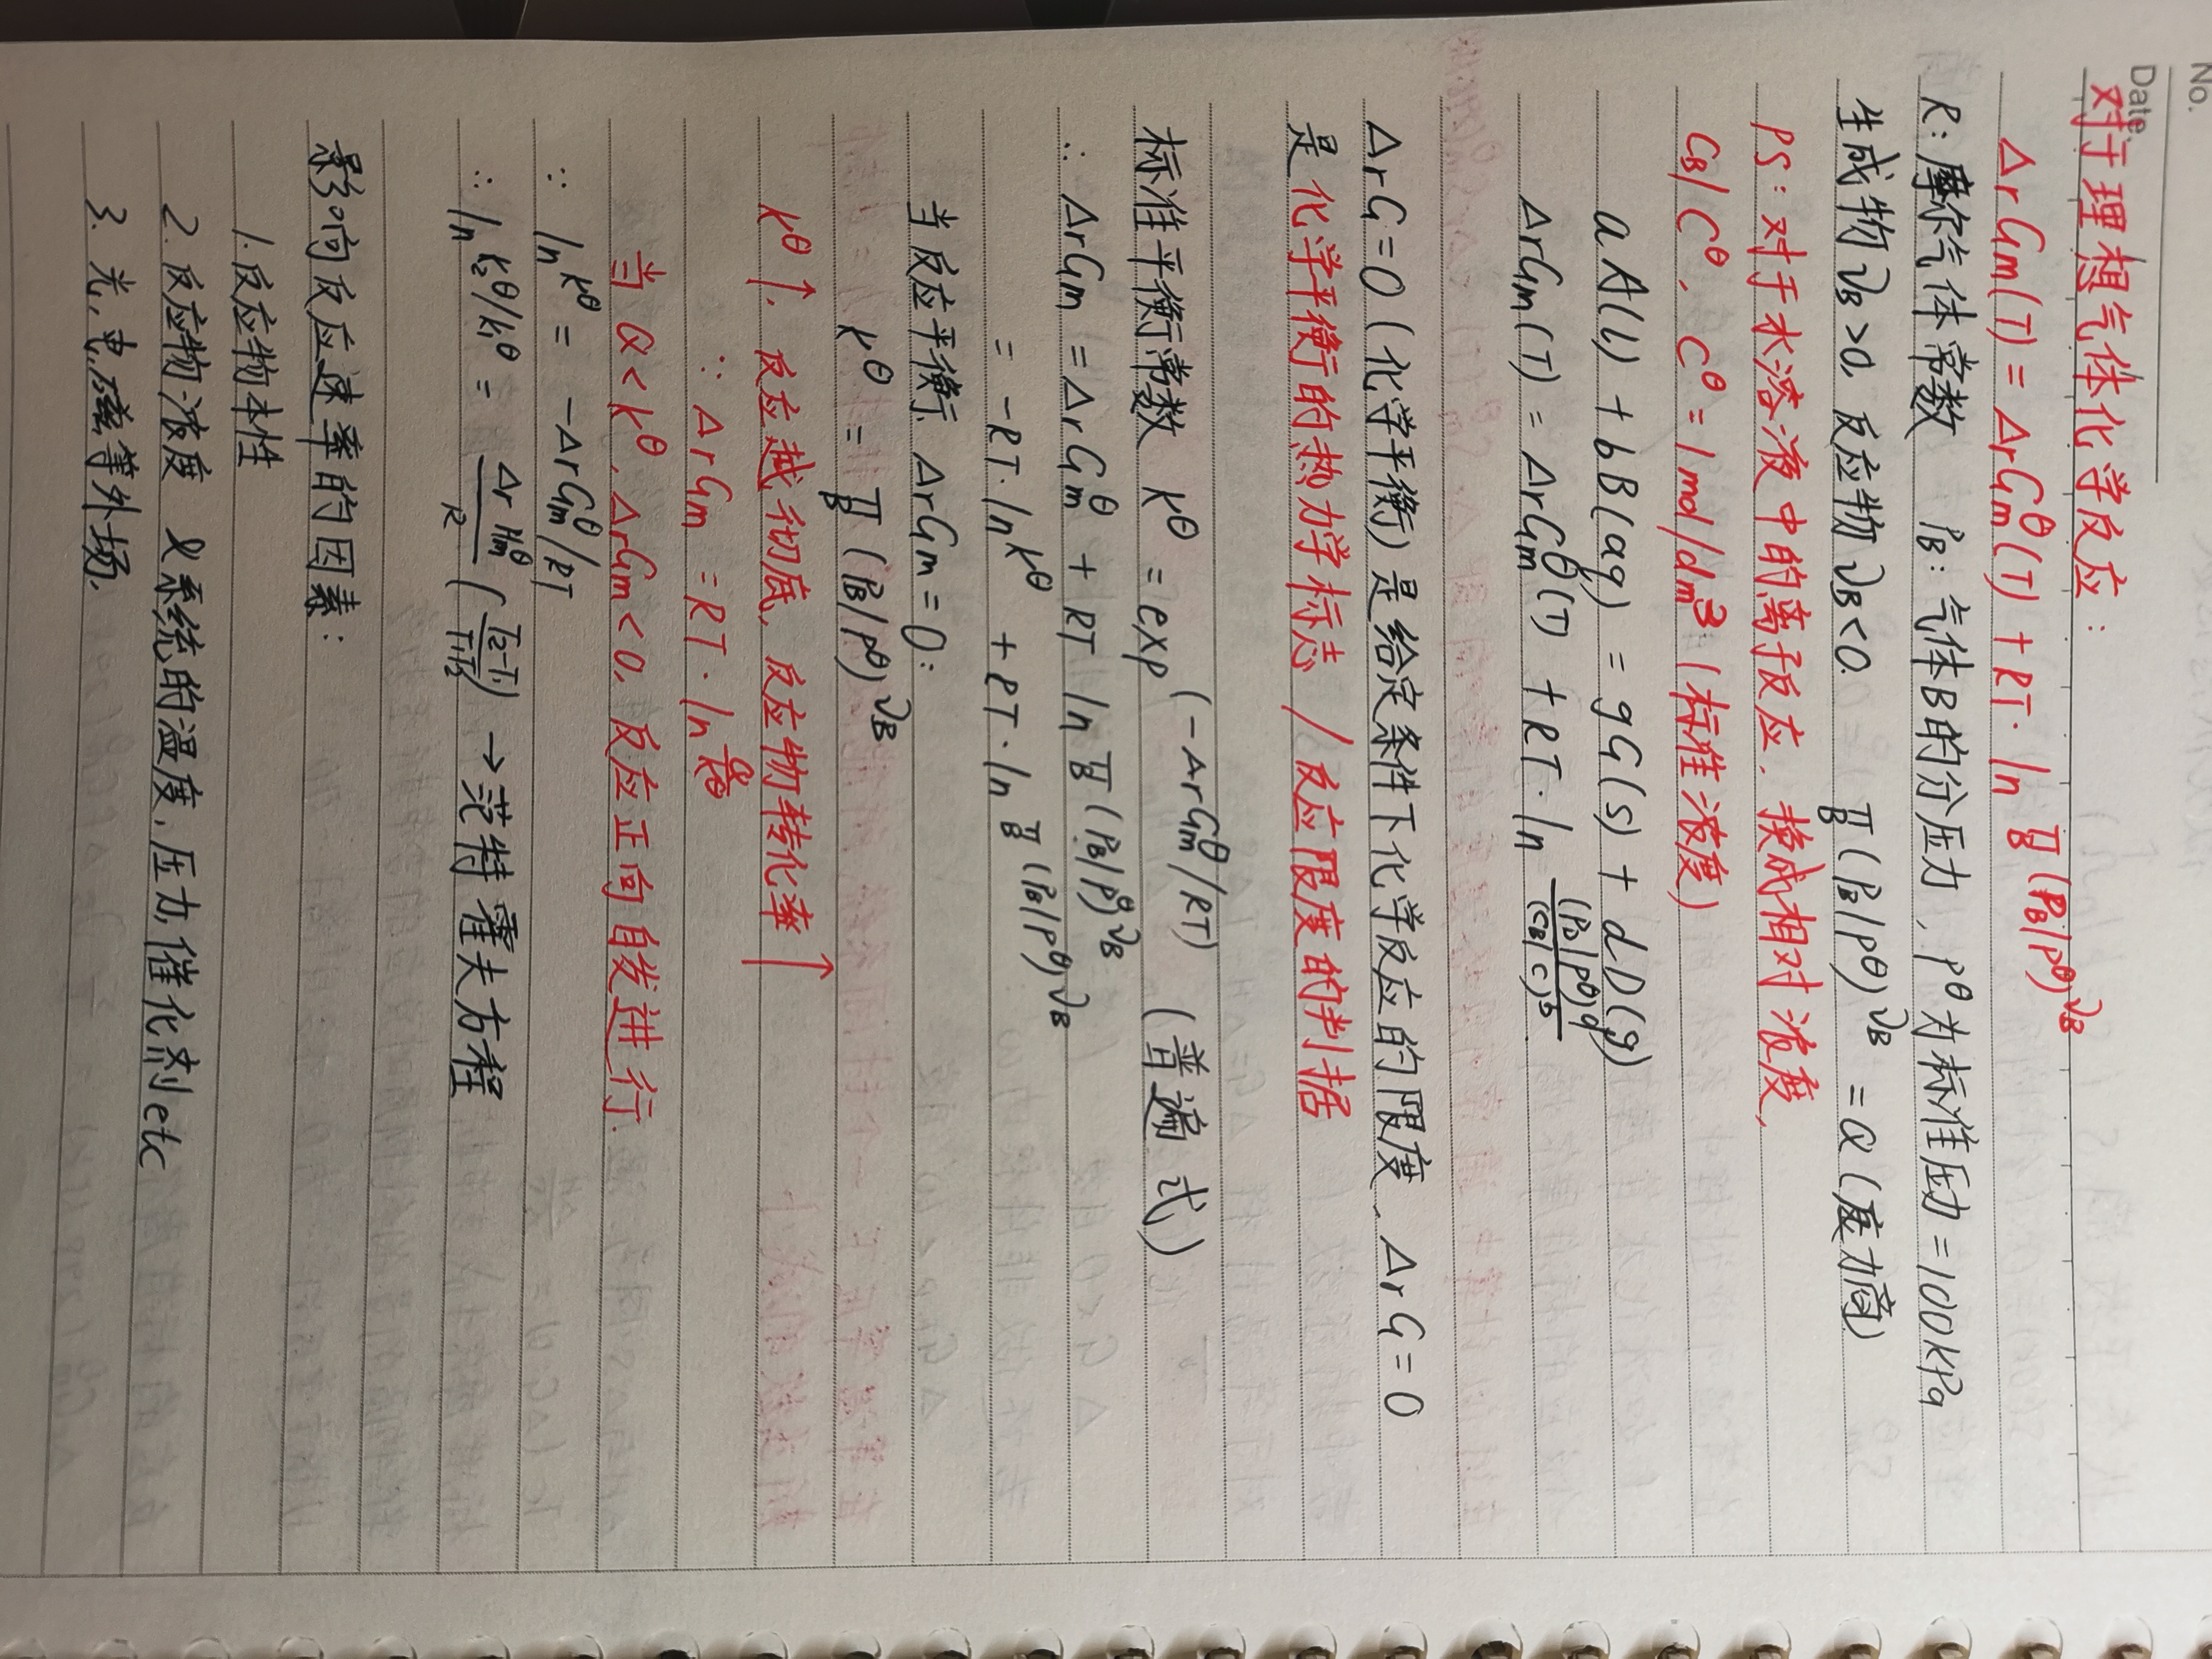 No.
Date.
对于理想气体化学反应:
ΔrGm(T) = ΔrGm^θ(T) + RT·ln π_B (P_B/P^θ)^ν_B
R: 摩尔气体常数 P_B: 气体B的分压力, P^θ为标准压力=100KPa
生成物ν_B>0, 反应物ν_B<0. π_B (P_B/P^θ)^ν_B = Q (压力商)
PS: 对于水溶液中的离子反应. 换成相对浓度,
C_B/C^θ, C^θ = 1mol/dm³ (标准浓度)
aA(l) + bB(aq) = gG(s) + dD(g)
ΔrGm(T) = ΔrGm^θ(T) + RT·ln (P_D/P^θ)^d/(C_B/C)^b
ΔrG=0 (化学平衡) 是给定条件下化学反应的限度, ΔrG=0
是化学平衡的热力学标志 / 反应限度的判据
标准平衡常数 K^θ = exp^(-ΔrGm^θ/RT) (普遍式)
∴ ΔrGm = ΔrGm^θ + RT ln π_B (P_B/P^θ)^ν_B
= -RT·ln K^θ + RT·ln π_B (P_B/P^θ)^ν_B
当反应平衡, ΔrGm = 0:
K^θ = π_B (P_B/P^θ)^ν_B
K^θ↑, 反应越彻底, 反应物转化率↑
∵ ΔrGm = RT·ln Q/K^θ
当 Q<K^θ, ΔrGm<0, 反应正向自发进行.
∵ ln K^θ = -ΔrGm^θ/RT
∴ ln K₂^θ/K₁^θ = ΔrHm^θ/R (T₂-T₁/T₁T₂) → 范特霍夫方程
影响反应速率的因素:
1. 反应物本性
2. 反应物浓度 & 系统的温度, 压力, 催化剂 etc
3. 光, 电, 磁等外场.